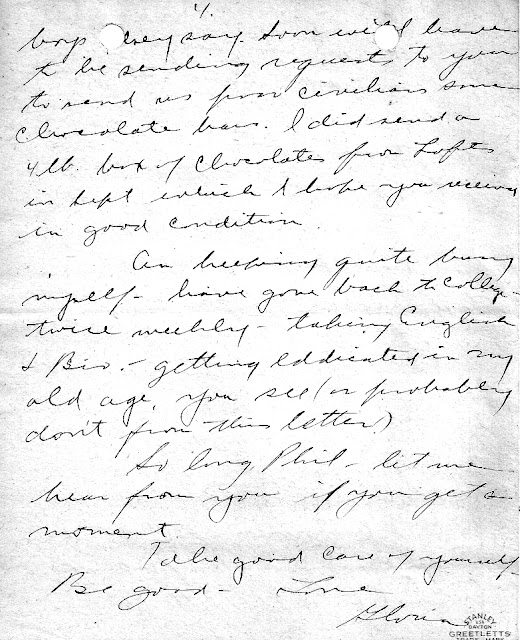 4.
boys they say. Soon we'll have
to be sending requests to you
to send us poor civilians some
chocolate bars. I did send a
4 lb. box of chocolates from Lofts
in Sept which I hope you received
in good condition.
Am keeping quite busy
myself - have gone back to College -
twice weekly - taking English
& Bio. - getting eddicated in my
old age, you see (or probably
don't from this letter)
So long Phil - let me
hear from you if you get a
moment.
Take good care of yourself.
Be good - Love
Gloria
STANLEY
USA
DAYTON
GREETLETTS
TRADE MARK